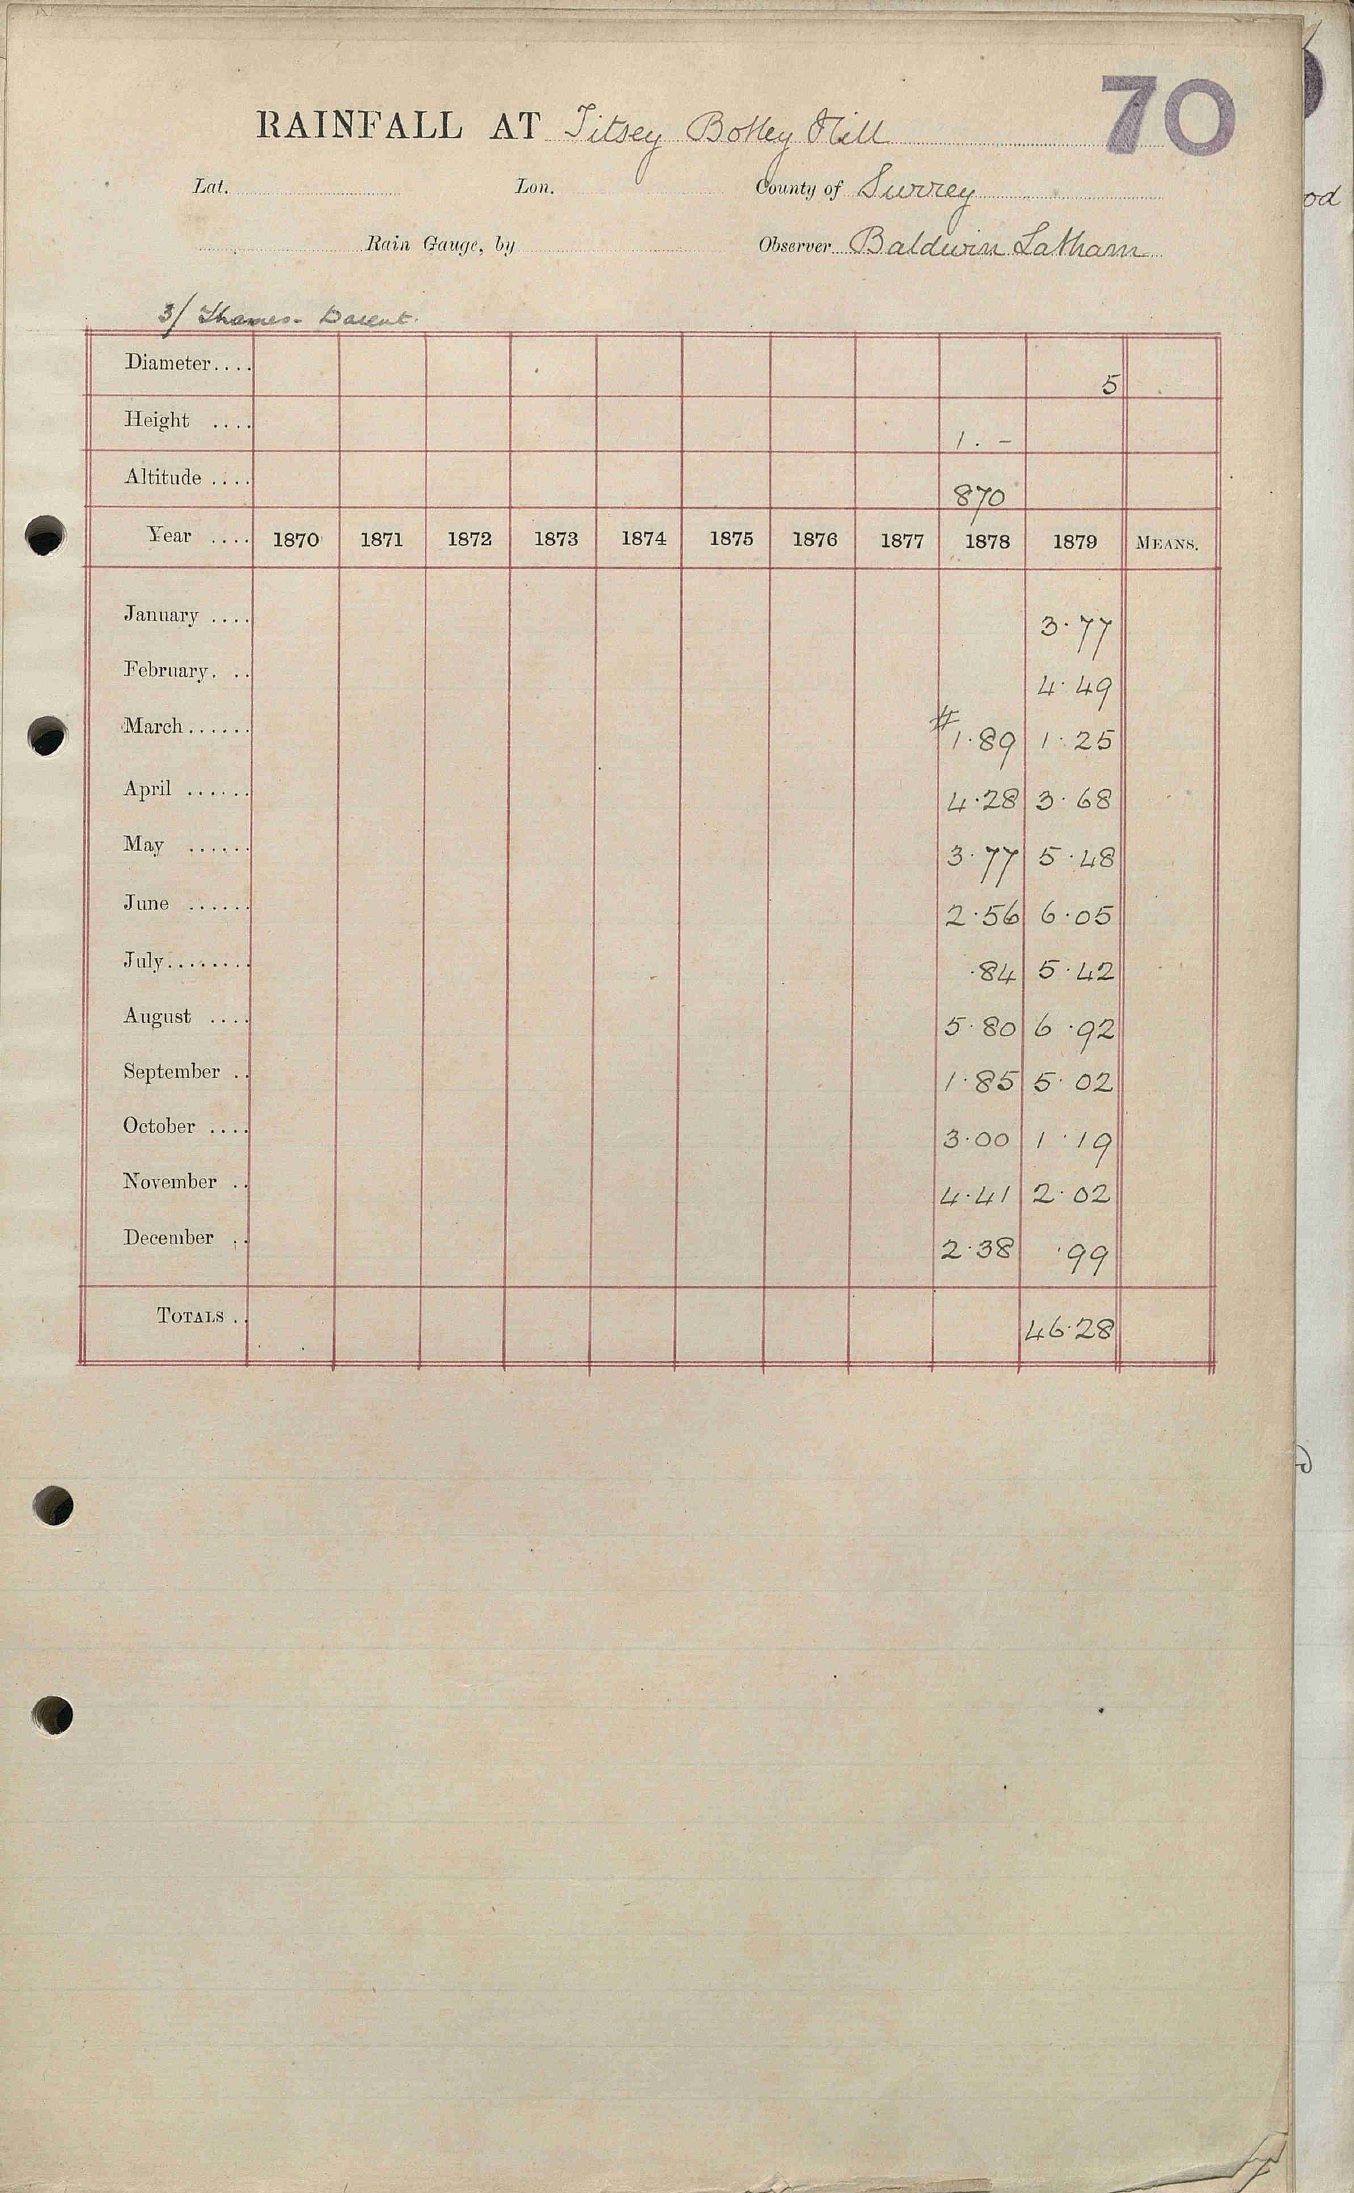 70
RAINFALL AT Titsey Botley Hill
Lat. Lon. County of Surrey
Rain Gauge, by Observer Baldwin Latham
3/ Thames - Darent.
Diameter.... 5
Height .... 1. -
Altitude .... 870
Year .... 1870 1871 1872 1873 1874 1875 1876 1877 1878 1879 MEANS.
January .... 3.77
February. .. 4.49
March...... # 1.89 1.25
April ...... 4.28 3.68
May ...... 3.77 5.48
June ...... 2.56 6.05
July........ .84 5.42
August .... 5.80 6.92
September .. 1.85 5.02
October .... 3.00 1.19
November .. 4.41 2.02
December .. 2.38 .99
TOTALS .. 46.28
od